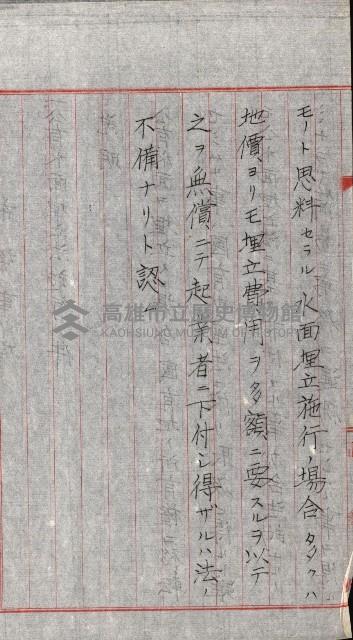 モノト思料セラル水面埋立施行ノ場合多クハ
地價ヨリモ埋立費用ヲ多額ニ要スルヲ以テ
之ヲ無償ニテ起業者ニ下付シ得ザルハ法ノ
不備ナリト認ム
高雄市立歷史博物館
KAOHSIUNG MUSEUM OF HISTORY